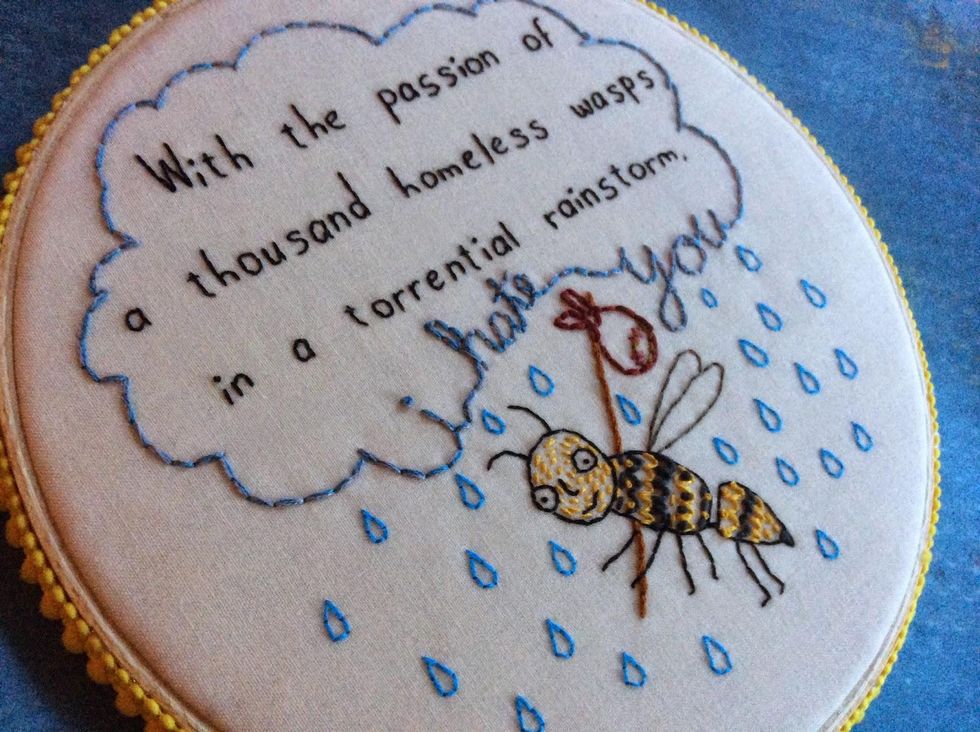 With the passion of
a thousand homeless wasps
in a torrential rainstorm,
i hate you